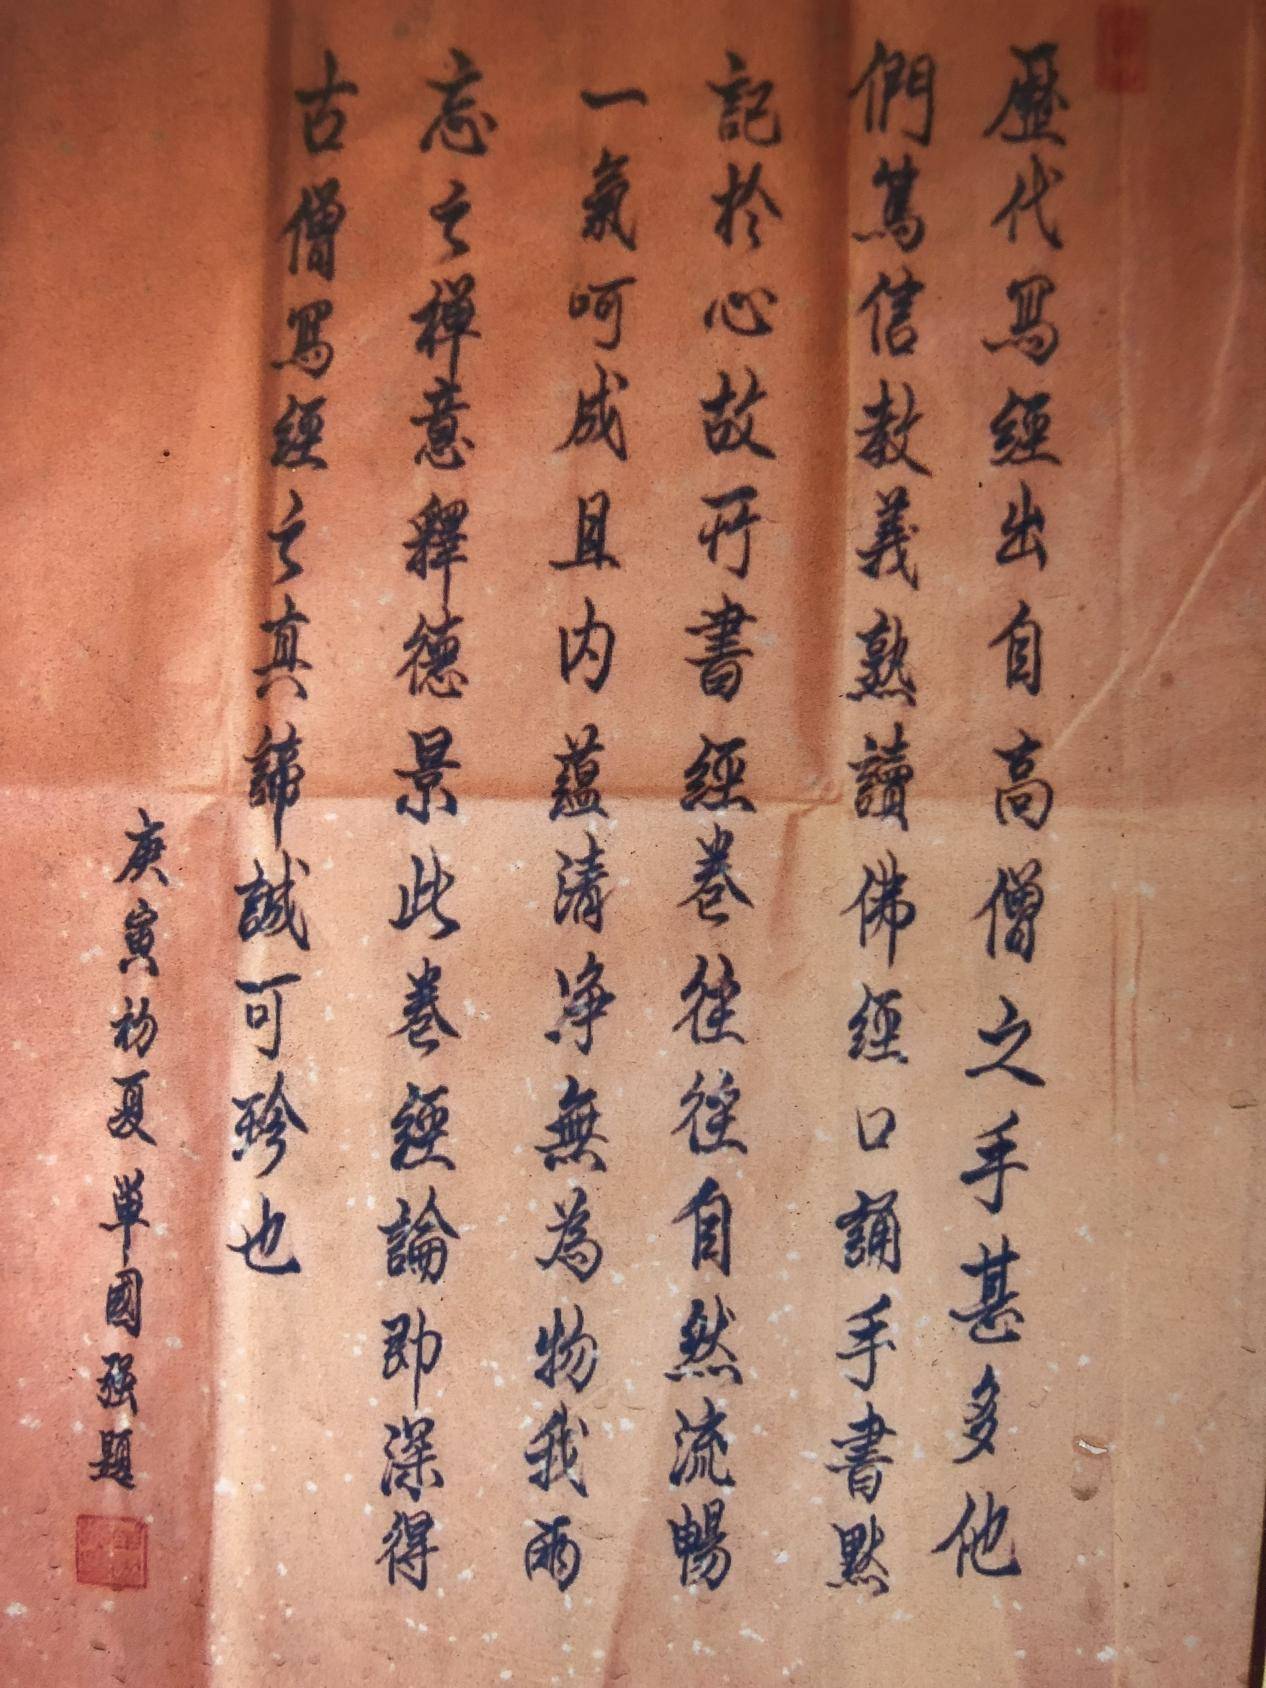 歷代寫經出自高僧之手甚多他
們篤信教義熟讀佛經口誦手書默
記於心故所書經卷往往自然流暢
一氣呵成且内蘊清净無為物我兩
忘之禅意釋德景此卷經論即深得
古僧寫經之真諦誠可珍也
庚寅初夏單國强題